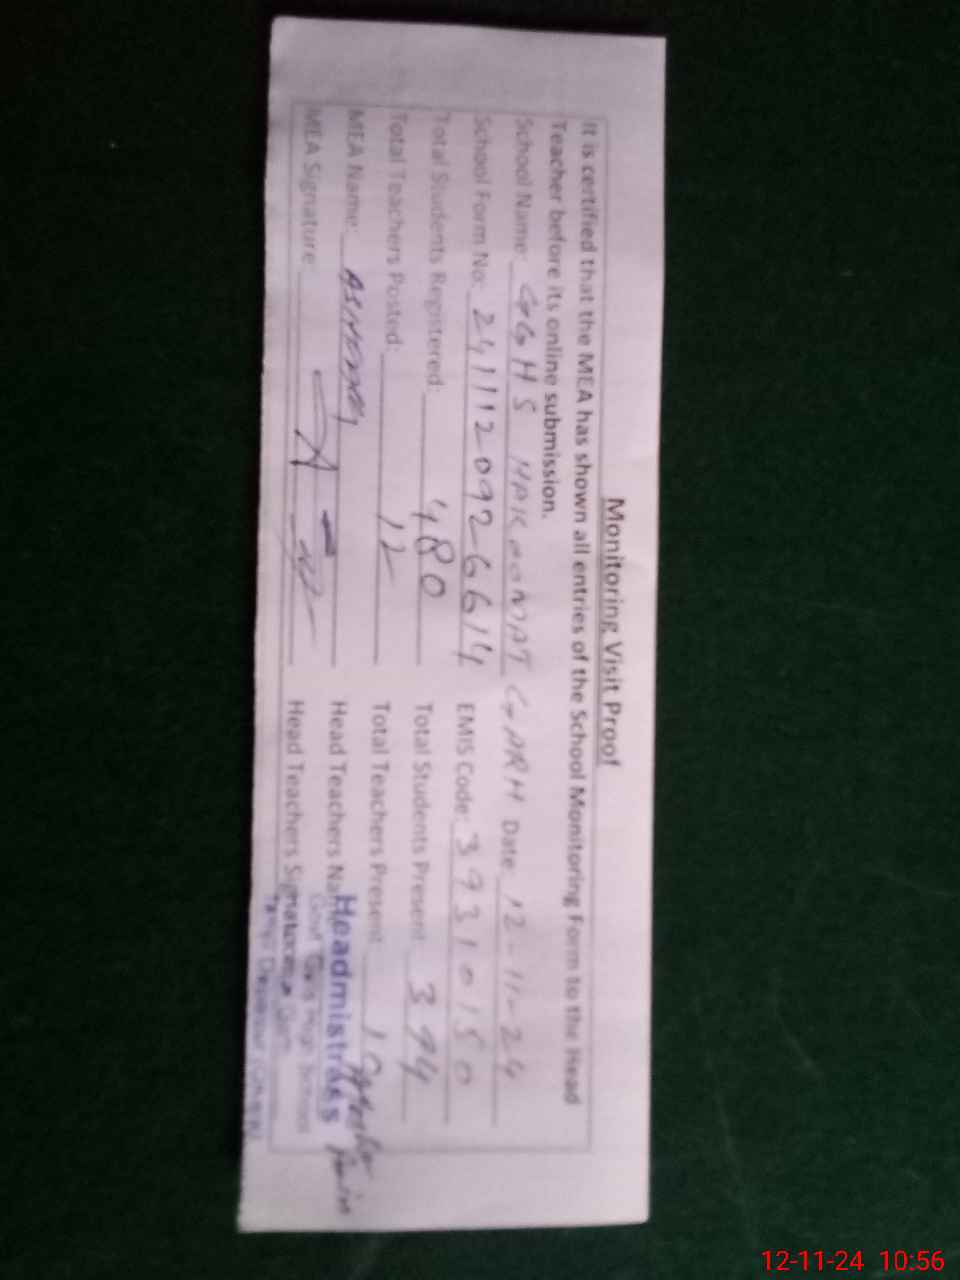 Monitoring Visit Proof
It is certified that the MEA has shown all entries of the School Monitoring Form to the Head
Teacher before its online submission.
School Name: GGHS HAKOOMAT GARH Date: 12-11-24
School Form No: 2411120926614 EMIS Code: 39310150
Total Students Registered: 480 Total Students Present: 394
Total Teachers Posted: 12 Total Teachers Present:
MEA Name: Head Teachers Name
MEA Signature: Head Teachers Signature
Headmistress
Govt Girls High School
12-11-24 10:56